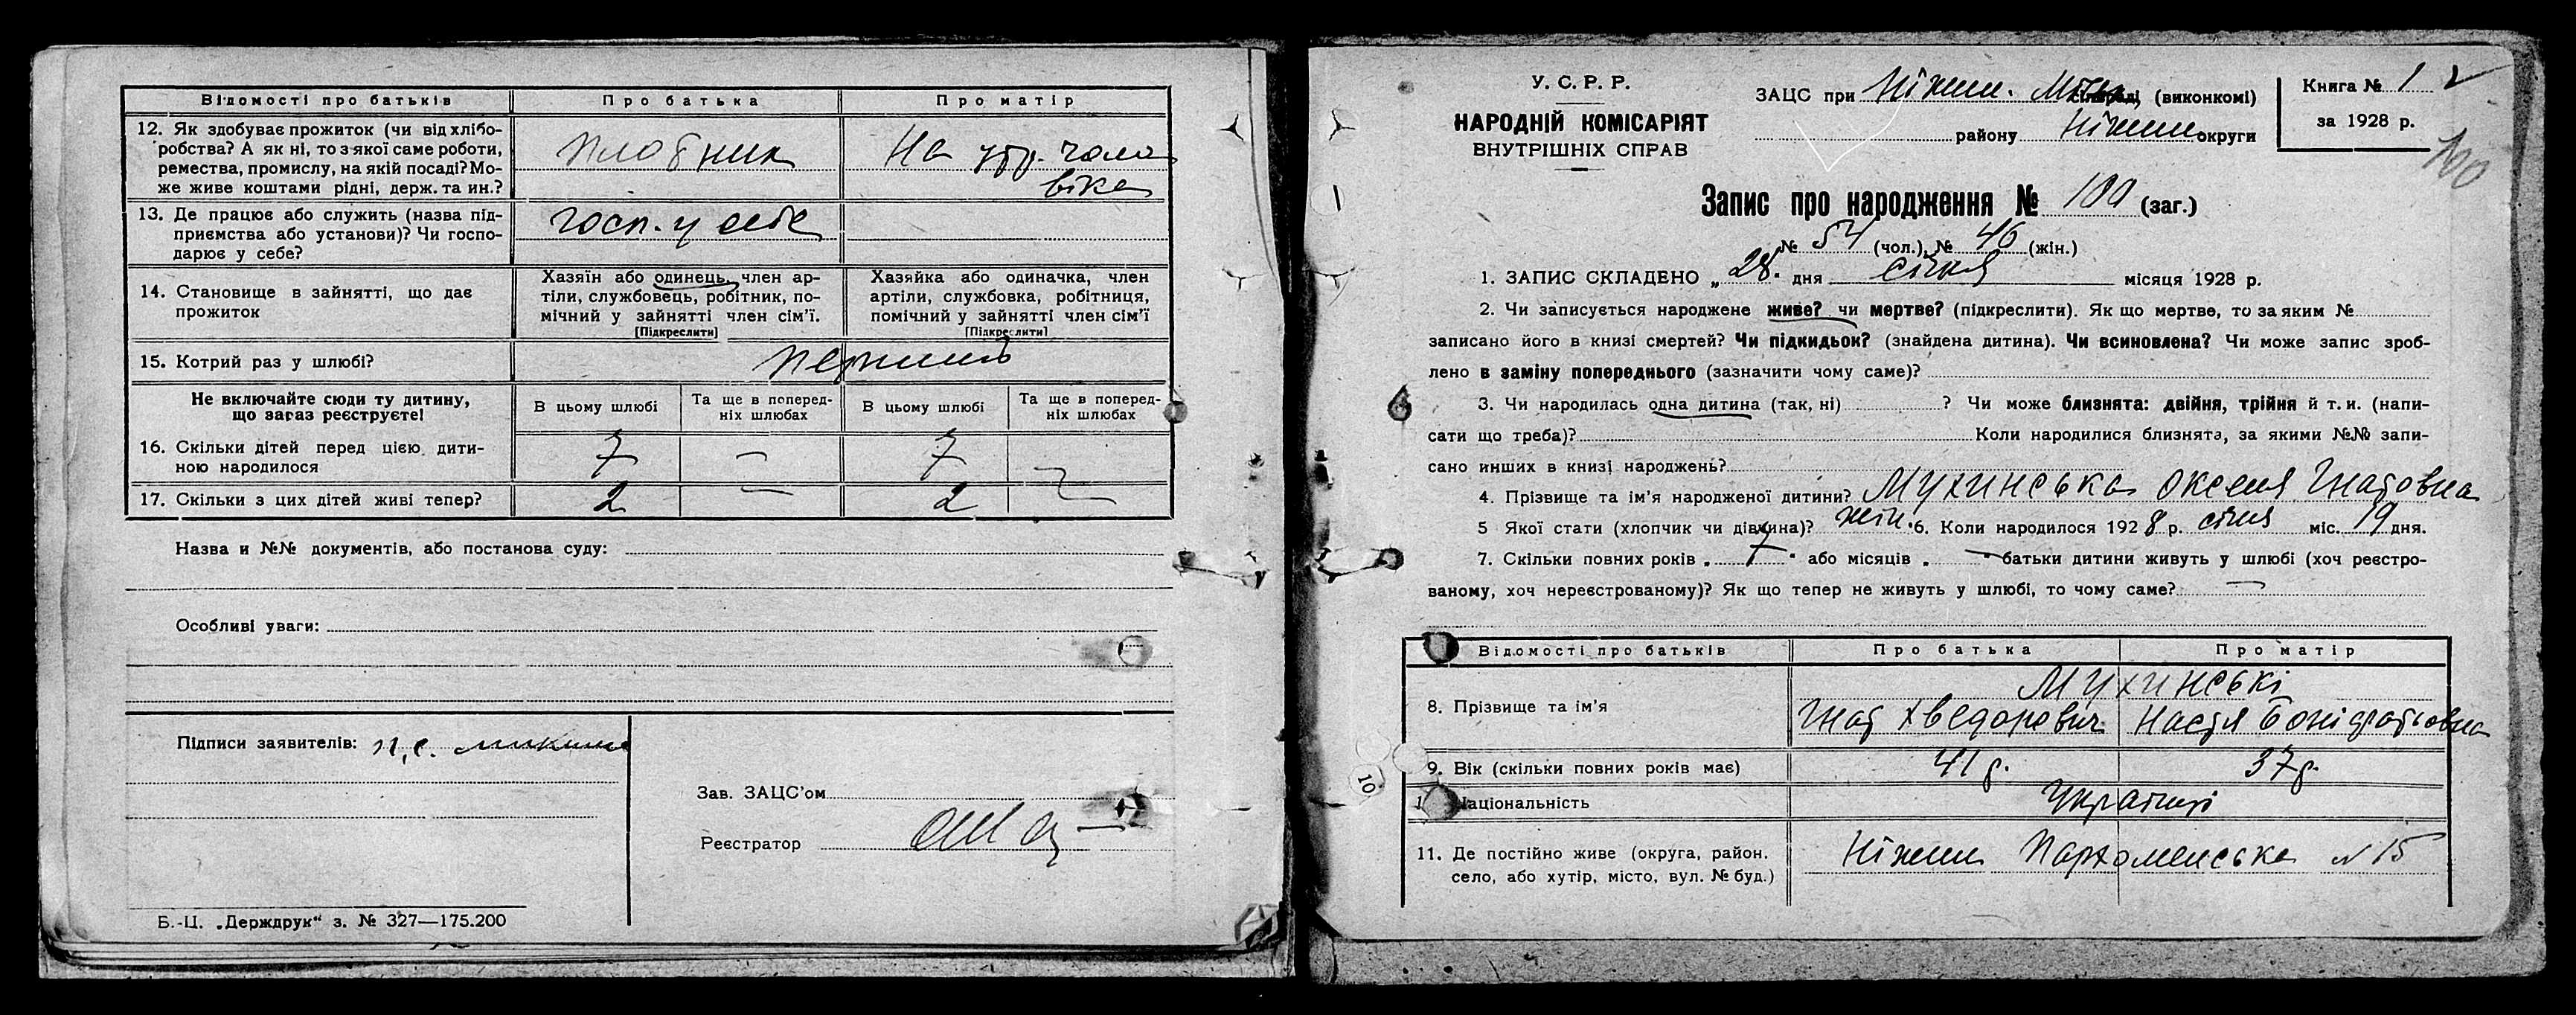 Відомості про батьків Про батька Про матір
12. Як здобуває прожиток (чи від хлібо-
робства? А як ні, то з якої саме роботи,
ремества, промислу, на якій посаді? Мо-
же живе коштами рідні, держ. та ин.?
Плотник
На утр. чоло
віка
13. Де працює або служить (назва під-
приємства або установи)? Чи госпо-
дарює у себе?
госп. у себе
14. Становище в зайнятті, що дає
прожиток
Хазяїн або одинець, член ар-
тіли, службовець, робітник, по-
мічний у зайнятті член сім'ї.
[Підкреслити]
Хазяйка або одиначка, член
артіли, службовка, робітниця,
помічний у зайнятті член сім'ї
[Підкреслити]
15. Котрий раз у шлюбі?
Не включайте сюди ту дитину,
що зараз реєструєте!
В цьому шлюбі
Та ще в поперед-
ніх шлюбах
В цьому шлюбі
Та ще в поперед-
ніх шлюбах
16. Скільки дітей перед цією дити-
ною народилося
7 — 7 —
17. Скільки з цих дітей живі тепер? 2 — 2 —
Назва и №№ документів, або постанова суду:
Особливі уваги:
Підписи заявителів:
Зав. ЗАЦС'ом
Реєстратор
Б.-Ц. „Держдрук" з. № 327—175.200
У. С. Р. Р.
НАРОДНІЙ КОМІСАРІЯТ
ВНУТРІШНІХ СПРАВ
ЗАЦС при Ніжин. (виконкомі)
району Ніжин округи
Книга № 1
за 1928 р.
100
Запис про народження № 100 (заг.)
№ 54 (чол.), № 46 (жін.)
1. ЗАПИС СКЛАДЕНО „28. дня січня місяця 1928 р.
2. Чи записується народжене живе? чи мертве? (підкреслити). Як що мертве, то за яким №
записано його в книзі смертей? Чи підкидьок? (знайдена дитина). Чи всиновлена? Чи може запис зроб-
лено в заміну попереднього (зазначити чому саме)?
3. Чи народилась одна дитина (так, ні) ? Чи може близнята: двійня, трійня й т. и. (напи-
сати що треба)? Коли народилися близнята, за якими №№ запи-
сано инших в книзі народжень?
4. Прізвище та ім'я народженої дитини? Мухинська Оксеня Гнатовна
5 Якої стати (хлопчик чи дівчина)? жін. 6. Коли народилося 1928 р. січня міс. 19 дня.
7. Скільки повних років „ 7 " або місяців „ — " батьки дитини живуть у шлюбі (хоч реєстро-
ваному, хоч нереєстрованому)? Як що тепер не живуть у шлюбі, то чому саме? —
Відомості про батьків Про батька Про матір
Мухинські
8. Прізвище та ім'я
Гнат Хведорович Настя
9. Вік (скільки повних років має) 41 р. 37 р.
Національність Українці
11. Де постійно живе (округа, район.
село, або хутір, місто, вул. № буд.)
Ніжин Пархоменська № 15
10